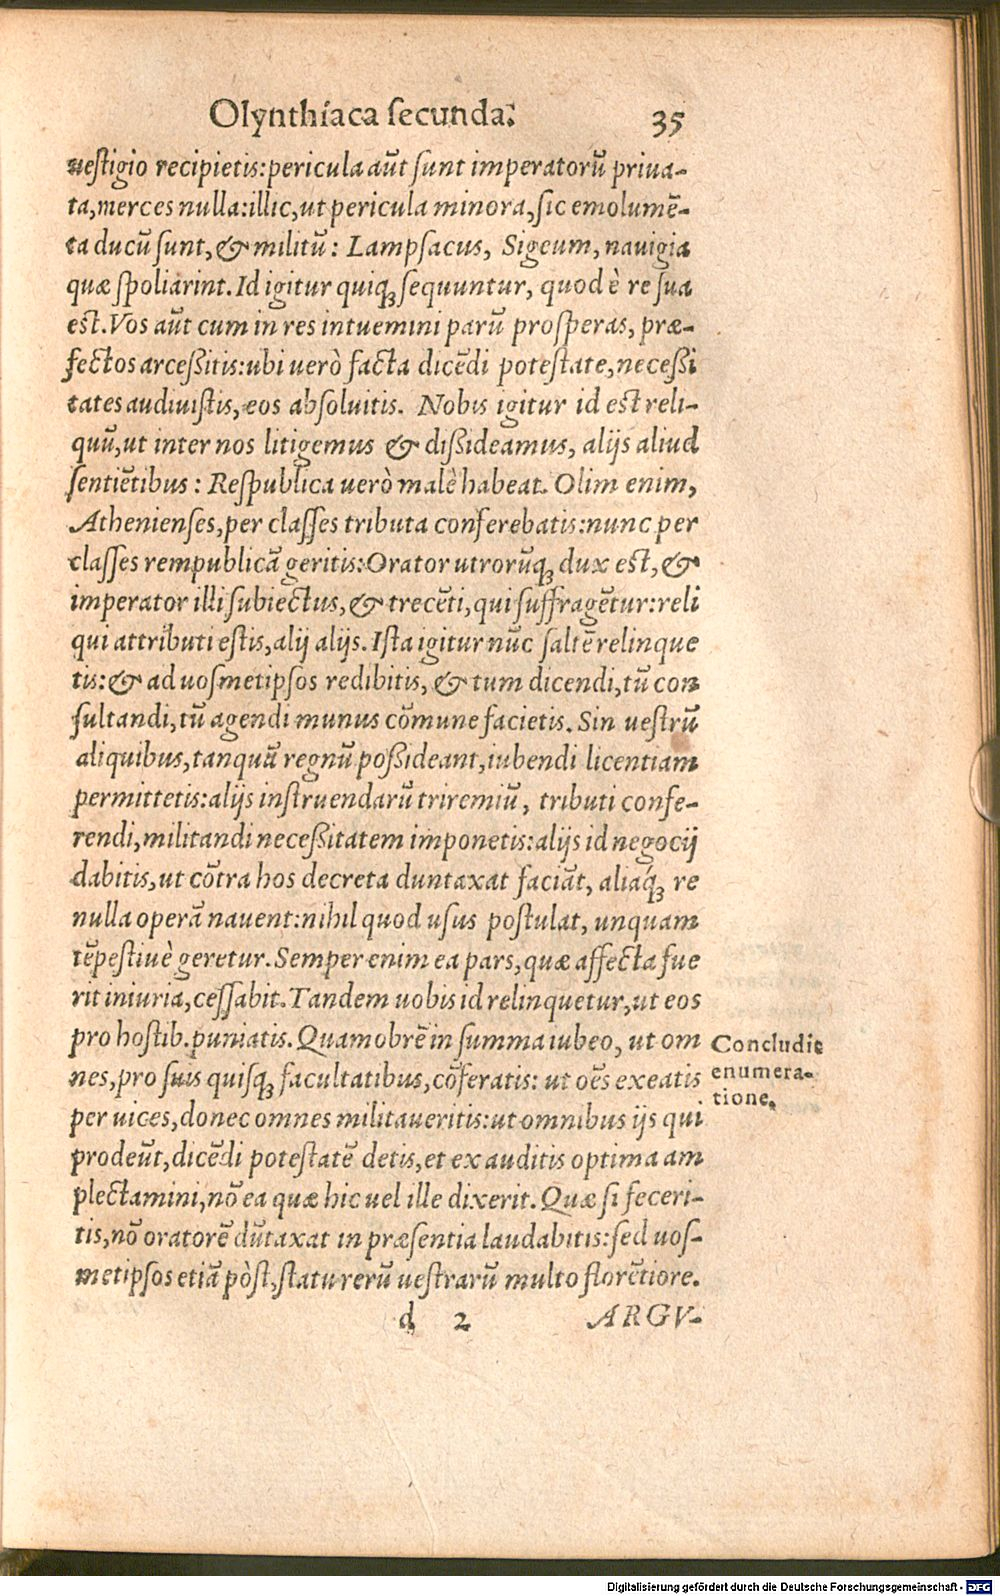 Olynthiaca secunda. 35
uestigio recipietis: pericula aūt sunt imperatorū priua-
ta, merces nulla: illic, ut pericula minora, sic emolumē-
ta ducū sunt, & militū: Lampsacus, Sigeum, nauigia
quæ spoliarint. Id igitur quiq; sequuntur, quod è re sua
est. Vos aūt cum in res intuemini parū prosperas, præ-
fectos arcessitis: ubi uerò facta dicēdi potestate, necessi
tates audiuistis, eos absoluitis. Nobis igitur id est reli-
quū, ut inter nos litigemus & dissideamus, alijs aliud
sentiētibus: Respublica uerò malè habeat. Olim enim,
Athenienses, per classes tributa conferebatis: nunc per
classes rempublicā geritis: Orator utrorūq; dux est, &
imperator illi subiectus, & trecēti, qui suffragētur: reli
qui attributi estis, alij alijs. Ista igitur nūc saltē relinque
tis: & ad uosmetipsos redibitis, & tum dicendi, tū con
sultandi, tū agendi munus cōmune facietis. Sin uestrū
aliquibus, tanquā regnū possideant, iubendi licentiam
permittetis: alijs instruendarū triremiū, tributi confe-
rendi, militandi necessitatem imponetis: alijs id negocij
dabitis, ut cōtra hos decreta duntaxat faciāt, aliaq́; re
nulla operā nauent: nihil quod usus postulat, unquam
tēpestiuè geretur. Semper enim ea pars, quæ affecta fue
rit iniuria, cessabit. Tandem uobis id relinquetur, ut eos
pro hostib. puniatis. Quamobrē in summa iubeo, ut om
nes, pro suis quisq; facultatibus, cōferatis: ut oēs exeatis
per uices, donec omnes militaueritis: ut omnibus ijs qui
prodeūt, dicēdi potestatē detis, et ex auditis optima am
plectamini, nō ea quæ hic uel ille dixerit. Quæ si feceri-
tis, nō oratorē dūtaxat in præsentia laudabitis: sed uos-
metipsos etiā pòst, statu rerū uestrarū multo florētiore.
d 2 ARGV-
Concludit
enumera-
tione.
Digitalisierung gefördert durch die Deutsche Forschungsgemeinschaft - DFG